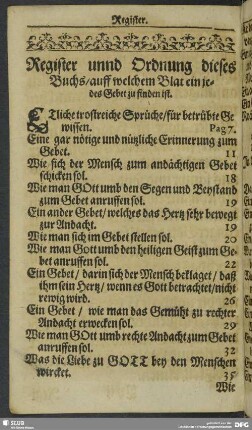 Register.
Register unnd Ordnung dieses
Buchs/ auff welchem Blat ein je-
des Gebet zu finden ist.
ETliche trostreiche Sprüche/ für betrübte Ge-
wissen. Pag 7.
Eine gar nötige und nützliche Erinnerung zum
Gebet. 11
Wie sich der Mensch zum andächtigen Gebet
schicken sol. 18
Wie man GOtt umb den Segen und Beystand
zum Gebet anruffen sol. 19
Ein ander Gebet/ welches das Hertz sehr bewegt
zur Andacht. 19
Wie man sich im Gebet stellen sol. 20
Wie man Gott umb den heiligen Geist zum Ge-
bet anruffen sol. 22
Ein Gebet/ darin sich der Mensch beklaget/ daß
ihm sein Hertz/ wenn es Gott betrachtet/ nicht
rewig wird. 26
Ein Gebet/ wie man das Gemüht zu rechter
Andacht erwecken sol. 29
Wie man GOtt umb rechte Andacht zum Gebet
anruffen sol. 32
Was die Liebe zu GOTT bey den Menschen
wircket. 35
Wie
SLUB
DFG